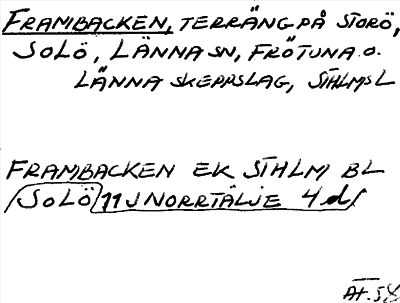 FRAMBACKEN, TERRÄNG PÅ STORÖ,
SOLÖ, LÄNNA SN, FRÖTUNA O.
LÄNNA SKEPPSLAG, STHLMS L
FRAMBACKEN EK STHLM BL
SOLÖ 11J NORRTÄLJE 4 d
AT. 58